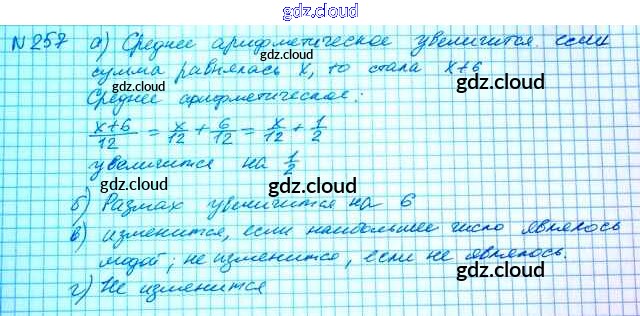 gdz.cloud
N 257 а) Среднее арифметическое увеличится. если
сумма равнялась x, то стала x+6
gdz.cloud
Среднее арифметическое:
gdz.cloud
x+6/12 = x/12 + 6/12 = x/12 + 1/2
gdz.cloud
увеличится на 1/2
gdz.cloud
gdz.cloud
б) Размах увеличится на 6
gdz.cloud
в) изменится, если наибольшее число являлось
модой; не изменится, если не являлось.
gdz.cloud
г) Не изменится
gdz.cloud